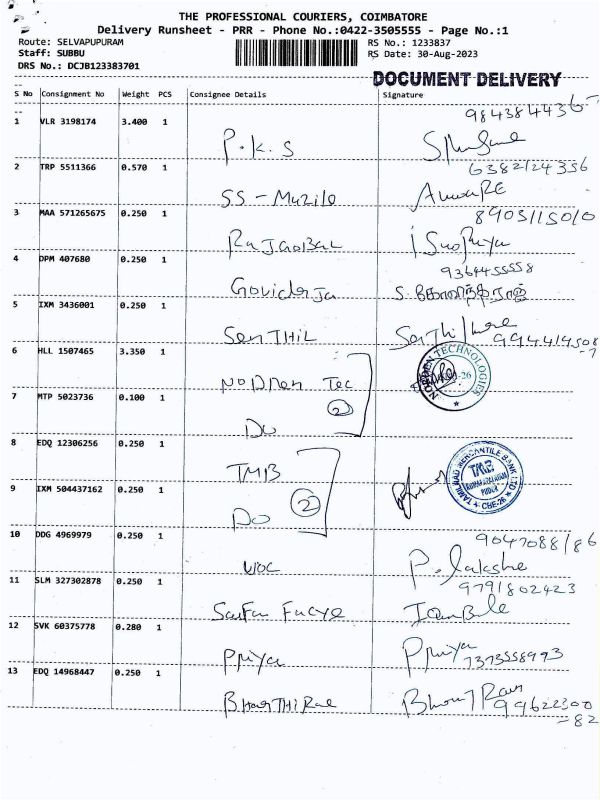 THE PROFESSIONAL COURIERS, COIMBATORE
Delivery Runsheet - PRR - Phone No.:0422-3505555 - Page No.:1
Route: SELVAPUPURAM
RS No.: 1233837
Staff: SUBBU
RS Date: 30-Aug-2023
DRS No.: DCJB123383701
DOCUMENT DELIVERY
S No Consignment No Weight PCS Consignee Details Signature
9843844367
1 VLR 3198174 3.400 1
P.K.S
6382124356
2 TRP 5511366 0.570 1
SS-Muzile
8903115010
3 MAA 571265675 0.250 1
Rajaobal
4 DPM 407680 0.250 1
9364455558
Goviderja
S. கோவிந்தராஜ்
5 IXM 3436001 0.250 1
SenTHiL
9944195087
6 HLL 1507465 3.350 1
NODDen Tec
NORDEN TECHNOLOGIES
7 MTP 5023736 0.100 1
2
Do
8 EDQ 12306256 0.250 1
TMB
TAMILNAD MERCANTILE BANK LTD
TMB
CBE-26
9 IXM 504437162 0.250 1
Do 2
10 DDG 4969979 0.250 1
9047088186
VOC
P. lakshe
11 SLM 327302878 0.250 1
9791802423
12 SVK 60375778 0.280 1
Priya
Priya
7373558993
13 EDQ 14968447 0.250 1
BharThiRae
99622300
-82